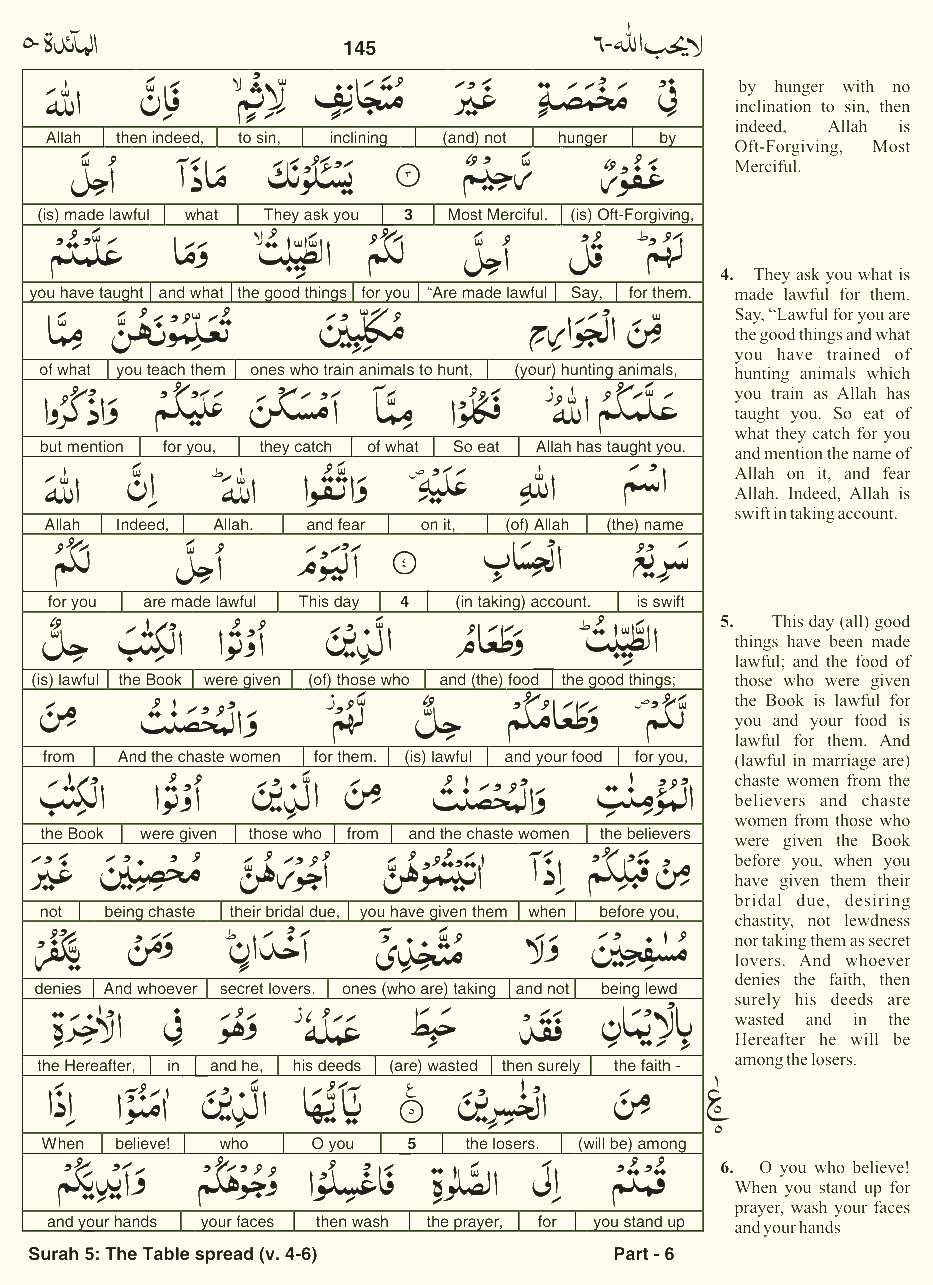 المآئدة-٥
145
لا يحب الله-٦
فِيْ مَخْمَصَةٍ غَيْرَ مُتَجَانِفٍ لِّاِثْمٍ ۙ فَاِنَّ اللّٰهَ
Allah then indeed, to sin, inclining (and) not hunger by
غَفُوْرٌ رَّحِيْمٌ ٣ يَسْـَٔلُوْنَكَ مَاذَآ اُحِلَّ
(is) made lawful what They ask you 3 Most Merciful. (is) Oft-Forgiving,
لَهُمْ ؕ قُلْ اُحِلَّ لَكُمُ الطَّيِّبٰتُ ۙ وَمَا عَلَّمْتُمْ
you have taught and what the good things for you “Are made lawful Say, for them.
مِّنَ الْجَوَارِحِ مُكَلِّبِيْنَ تُعَلِّمُوْنَهُنَّ مِمَّا
of what you teach them ones who train animals to hunt, (your) hunting animals,
عَلَّمَكُمُ اللّٰهُ ؗ فَكُلُوْا مِمَّآ اَمْسَكْنَ عَلَيْكُمْ وَاذْكُرُوا
but mention for you, they catch of what So eat Allah has taught you.
اسْمَ اللّٰهِ عَلَيْهِ ۪ وَاتَّقُوا اللّٰهَ ؕ اِنَّ اللّٰهَ
Allah Indeed, Allah. and fear on it, (of) Allah (the) name
سَرِيْعُ الْحِسَابِ ٤ اَلْيَوْمَ اُحِلَّ لَكُمُ
for you are made lawful This day 4 (in taking) account. is swift
الطَّيِّبٰتُ ؕ وَطَعَامُ الَّذِيْنَ اُوْتُوا الْكِتٰبَ حِلٌّ
(is) lawful the Book were given (of) those who and (the) food the good things;
لَّكُمْ ۪ وَطَعَامُكُمْ حِلٌّ لَّهُمْ ؗ وَالْمُحْصَنٰتُ مِنَ
from And the chaste women for them. (is) lawful and your food for you,
الْمُؤْمِنٰتِ وَالْمُحْصَنٰتُ مِنَ الَّذِيْنَ اُوْتُوا الْكِتٰبَ
the Book were given those who from and the chaste women the believers
مِنْ قَبْلِكُمْ اِذَآ اٰتَيْتُمُوْهُنَّ اُجُوْرَهُنَّ مُحْصِنِيْنَ غَيْرَ
not being chaste their bridal due, you have given them when before you,
مُسٰفِحِيْنَ وَلَا مُتَّخِذِيْٓ اَخْدَانٍ ؕ وَمَنْ يَّكْفُرْ
denies And whoever secret lovers. ones (who are) taking and not being lewd
بِالْاِيْمَانِ فَقَدْ حَبِطَ عَمَلُهٗ ؗ وَهُوَ فِي الْاٰخِرَةِ
the Hereafter, in and he, his deeds (are) wasted then surely the faith -
مِنَ الْخٰسِرِيْنَ ٥ يٰٓاَيُّهَا الَّذِيْنَ اٰمَنُوْٓا اِذَا
When believe! who O you 5 the losers. (will be) among
قُمْتُمْ اِلَى الصَّلٰوةِ فَاغْسِلُوْا وُجُوْهَكُمْ وَاَيْدِيَكُمْ
and your hands your faces then wash the prayer, for you stand up
by hunger with no
inclination to sin, then
indeed, Allah is
Oft-Forgiving, Most
Merciful.
4. They ask you what is
made lawful for them.
Say, “Lawful for you are
the good things and what
you have trained of
hunting animals which
you train as Allah has
taught you. So eat of
what they catch for you
and mention the name of
Allah on it, and fear
Allah. Indeed, Allah is
swift in taking account.
5. This day (all) good
things have been made
lawful; and the food of
those who were given
the Book is lawful for
you and your food is
lawful for them. And
(lawful in marriage are)
chaste women from the
believers and chaste
women from those who
were given the Book
before you, when you
have given them their
bridal due, desiring
chastity, not lewdness
nor taking them as secret
lovers. And whoever
denies the faith, then
surely his deeds are
wasted and in the
Hereafter he will be
among the losers.
6. O you who believe!
When you stand up for
prayer, wash your faces
and your hands
Surah 5: The Table spread (v. 4-6)
Part - 6